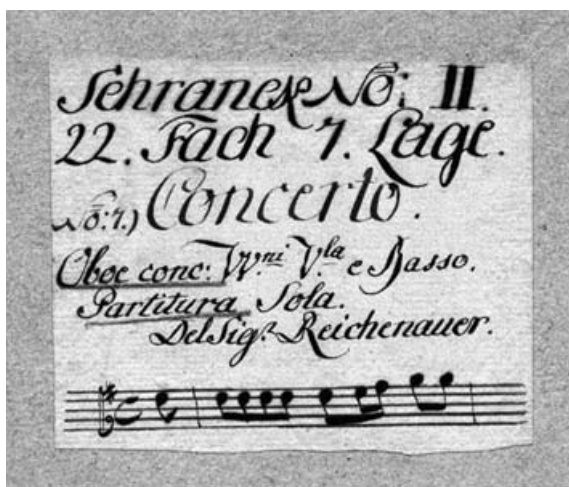 Schranck No: II.
22. Fach 7. Lage.
No: 7.) Concerto.
Oboe conc: VV.ni V.la e Basso.
Partitura Sola.
Del Sig.r Reichenauer.